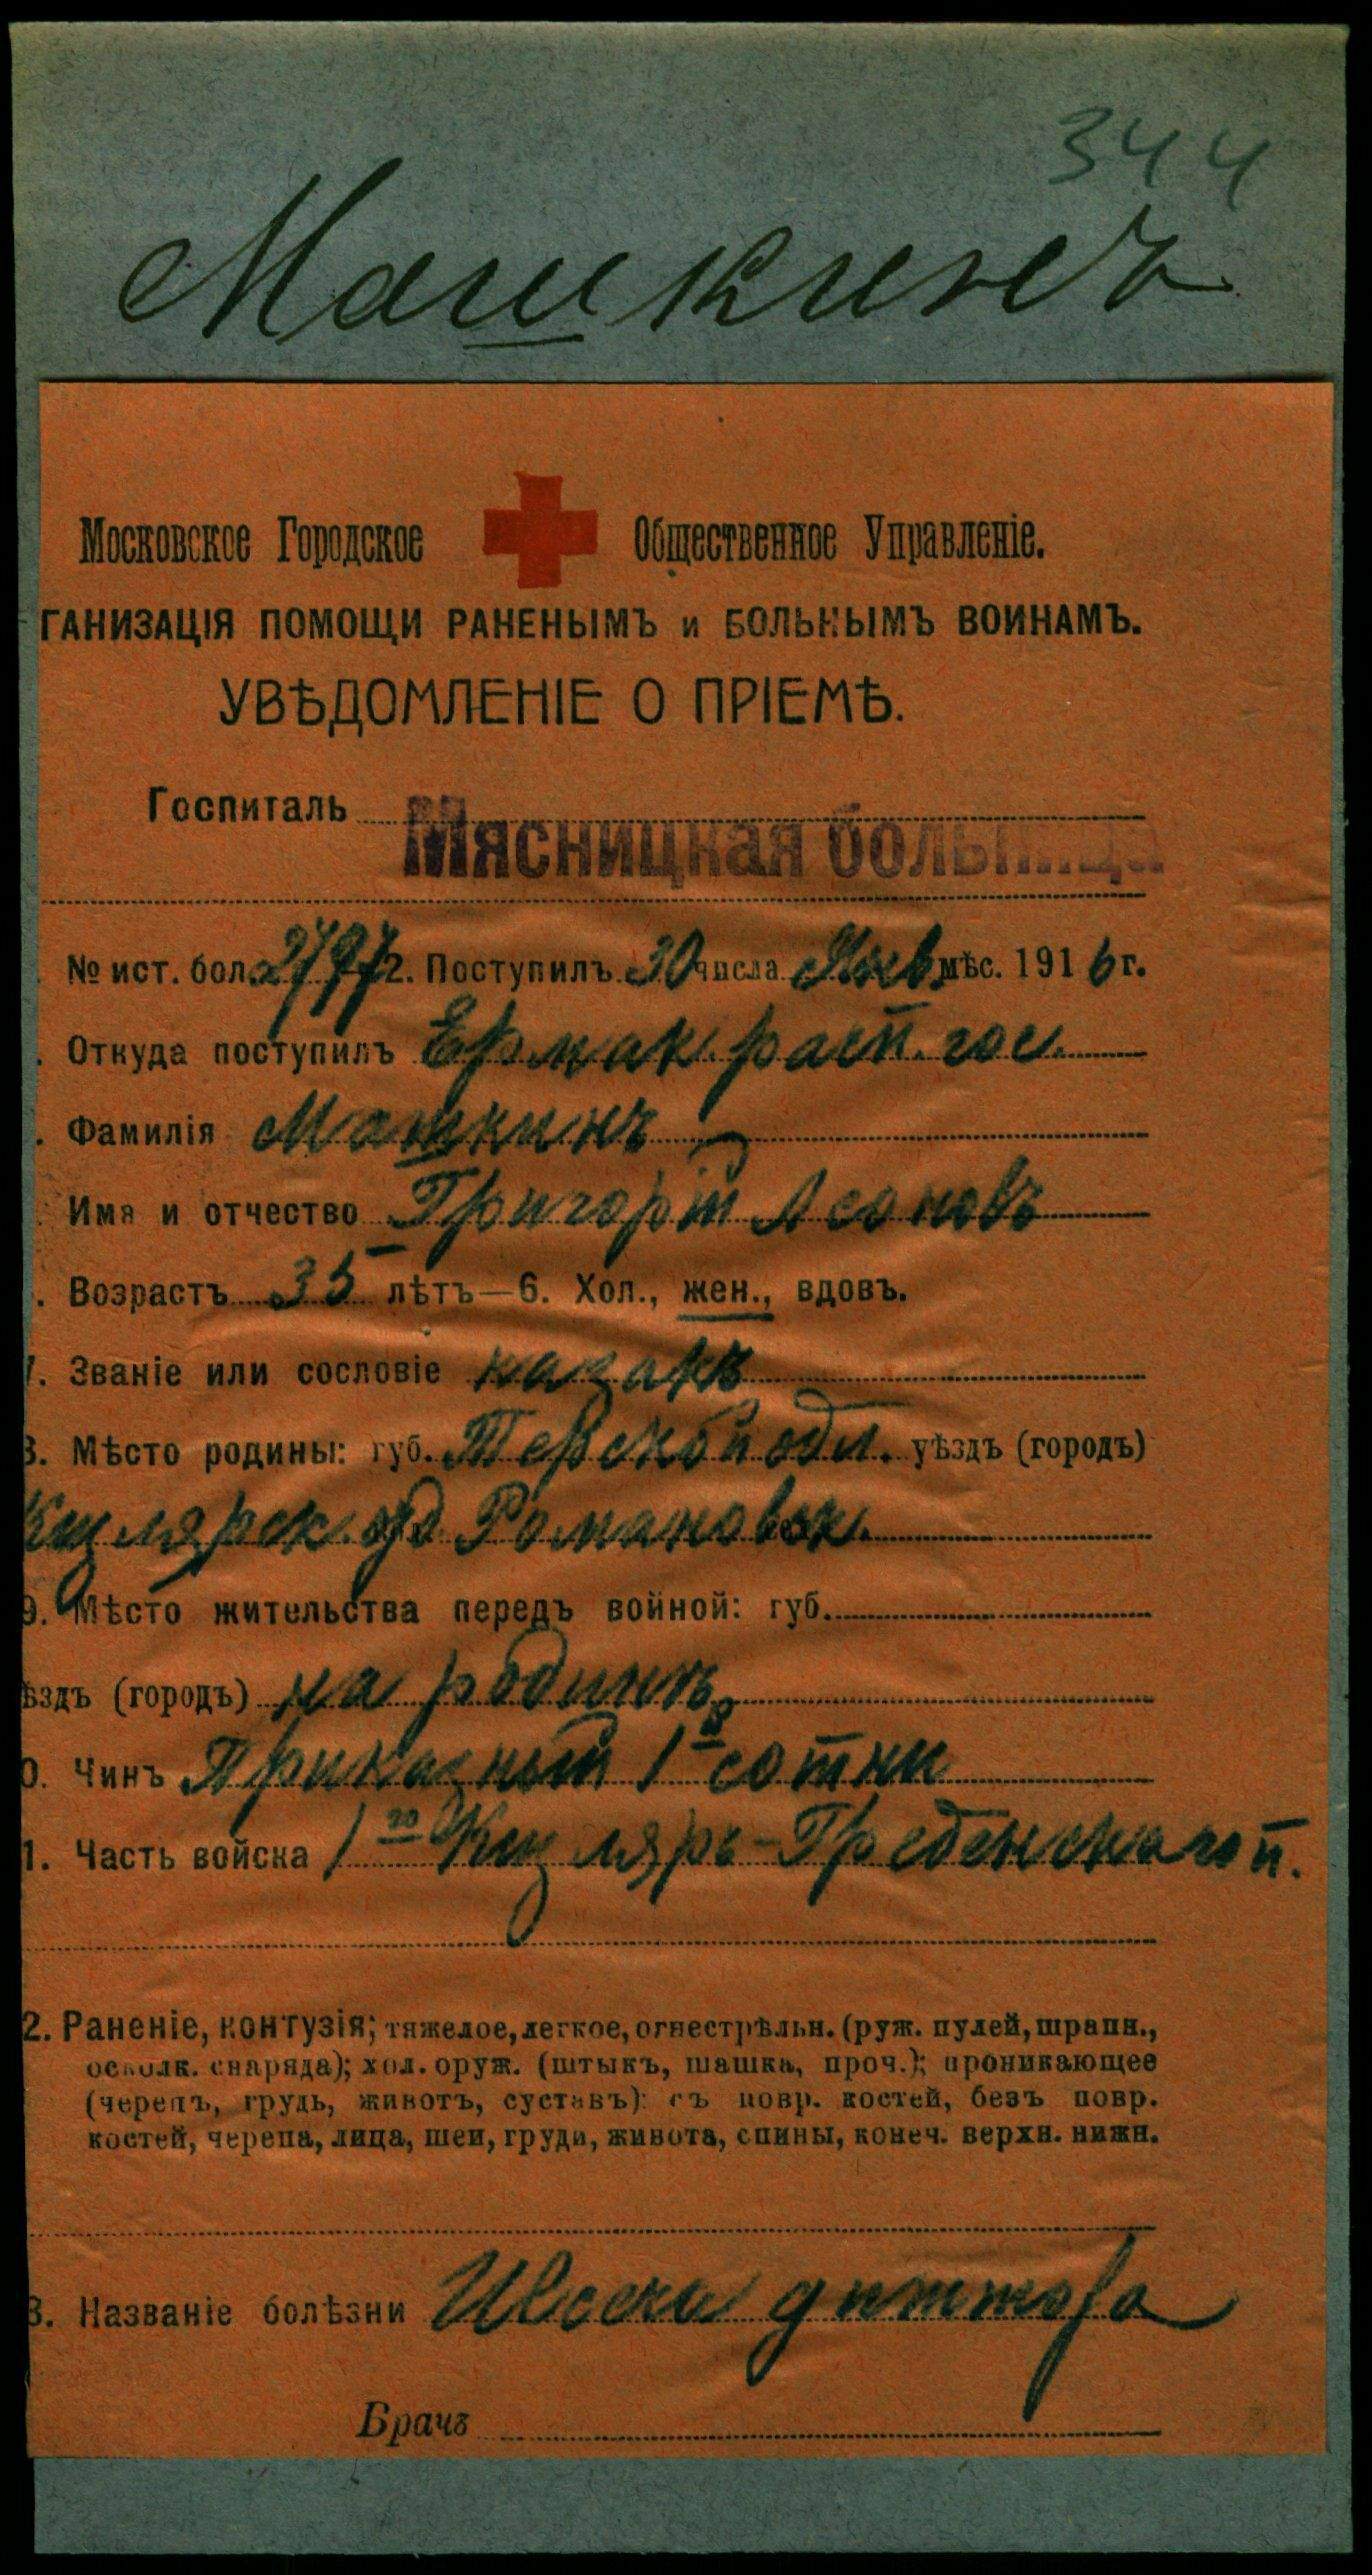 344
Машкинъ
Московское Городское Общественное Управленіе.
ГАНИЗАЦІЯ ПОМОЩИ РАНЕНЫМЪ и БОЛЬНЫМЪ ВОИНАМЪ.
УВѢДОМЛЕНІЕ О ПРІЕМѢ.
Госпиталь
Мясницкая больница
№ ист. бол. 2797 2. Поступилъ 30 числа Янв. мѣс. 1916 г.
. Откуда поступилъ Ермак. расп. гос.
. Фамилія Машкинъ
. Имя и отчество Григорій
. Возрастъ 35 лѣтъ—6. Хол., жен., вдовъ.
7. Званіе или сословіе казакъ
8. Мѣсто родины: губ. Терской обл. уѣздъ (городъ)
Кизлярск. отд Романовск.
9. Мѣсто жительства передъ войной: губ.
ѣздъ (городъ) на родинѣ
0. Чинъ Приказный 1й сотни
1. Часть войска 1го Кизляро-Гребенскаго п.
2. Раненіе, контузія; тяжелое, легкое, огнестрѣльн. (руж. пулей, шрапн.,
осколк. снаряда); хол. оруж. (штыкъ, шашка, проч.); проникающее
(черепъ, грудь, животъ, суставъ): съ повр. костей, безъ повр.
костей, черепа, лица, шеи, груди, живота, спины, конеч. верхн. нижн.
3. Названіе болѣзни
Врачъ